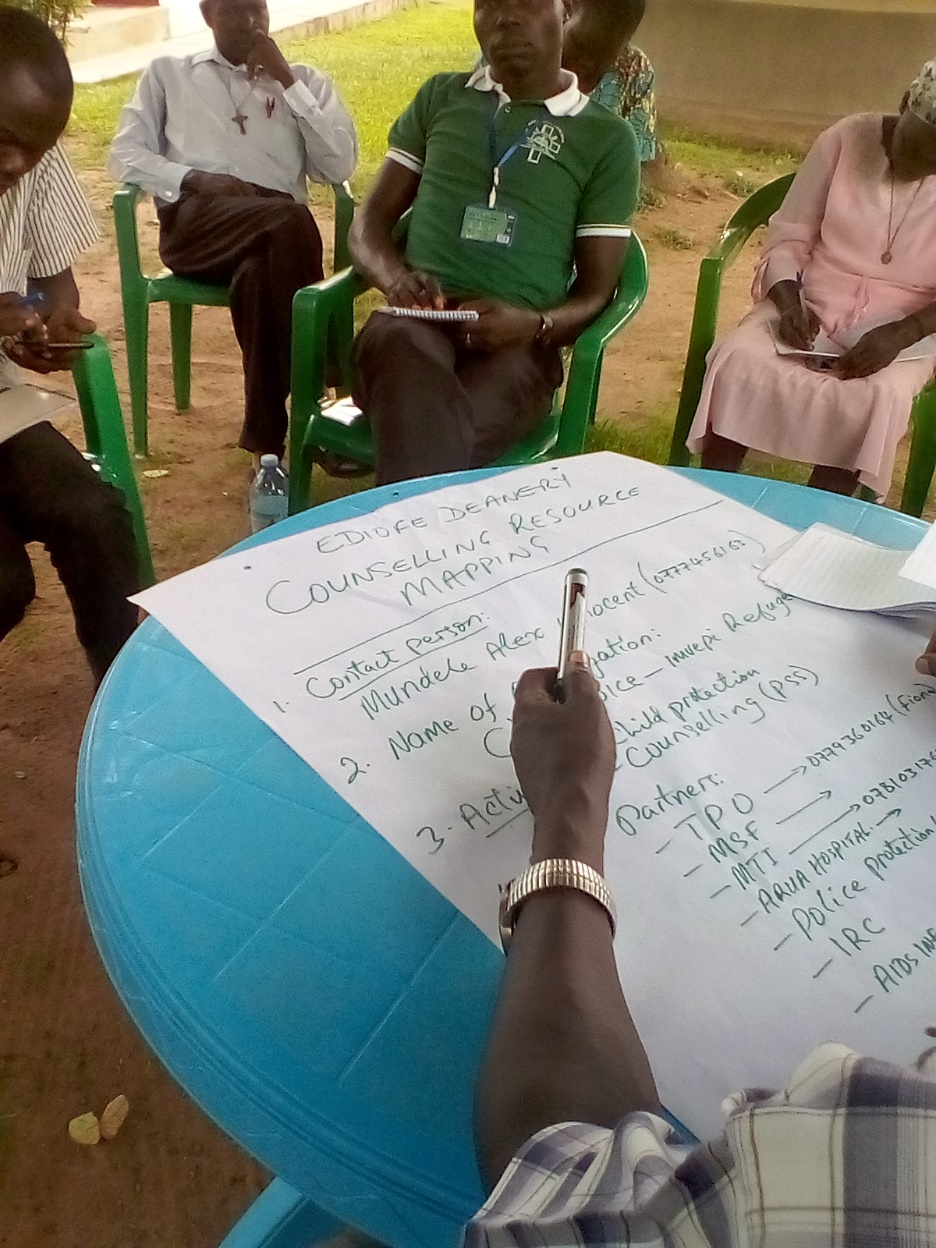 EDIOFE DEANERY
COUNSELLING RESOURCE
MAPPING
1. Contact person:
Mundele Alex (0777456162)
2. Name of
– Imvepi Refugee
3. Child protection
Counselling (PSS)
Partners:
– TPO → 0779360164 (Fiona
– MSF →
– MTI → 078103176
– ARUA HOSPITAL →
– Police protection
– IRC
– AIDS